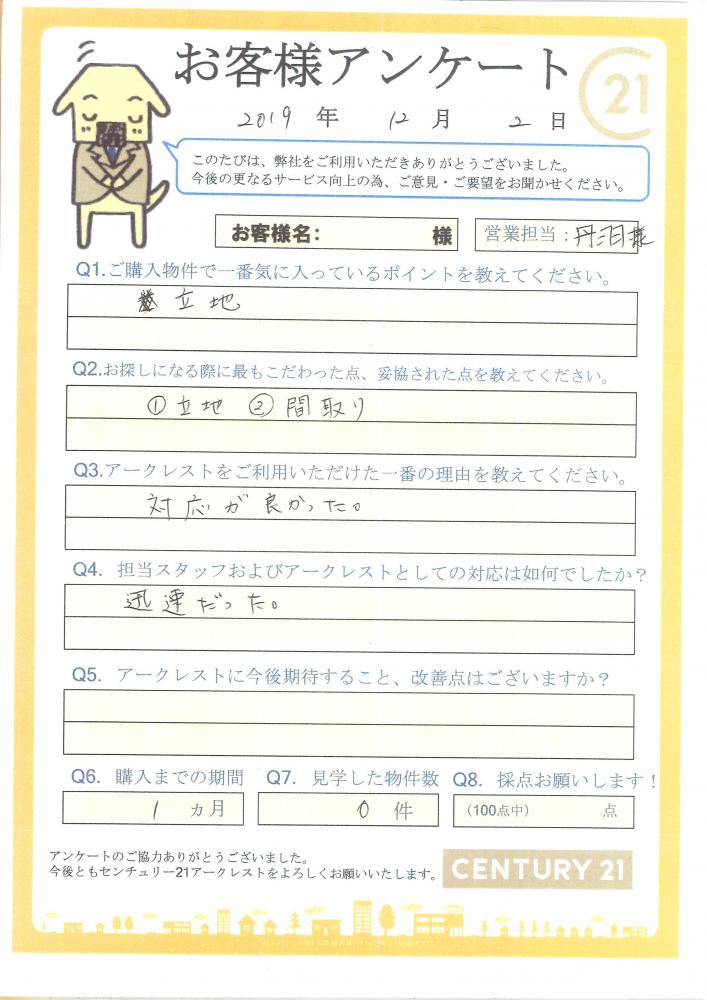 お客様アンケート
21
2019 年 12 月 2 日
このたびは、弊社をご利用いただきありがとうございました。
今後の更なるサービス向上の為、ご意見・ご要望をお聞かせください。
お客様名: 様
営業担当：丹羽様
Q1.ご購入物件で一番気に入っているポイントを教えてください。
立地
Q2.お探しになる際に最もこだわった点、妥協された点を教えてください。
①立地 ②間取り
Q3.アークレストをご利用いただけた一番の理由を教えてください。
対応が良かった。
Q4. 担当スタッフおよびアークレストとしての対応は如何でしたか？
迅速だった。
Q5. アークレストに今後期待すること、改善点はございますか？
Q6. 購入までの期間 Q7. 見学した物件数 Q8. 採点お願いします！
1 ヵ月 0 件 （100点中） 点
アンケートのご協力ありがとうございました。
今後ともセンチュリー21アークレストをよろしくお願いいたします。
CENTURY 21